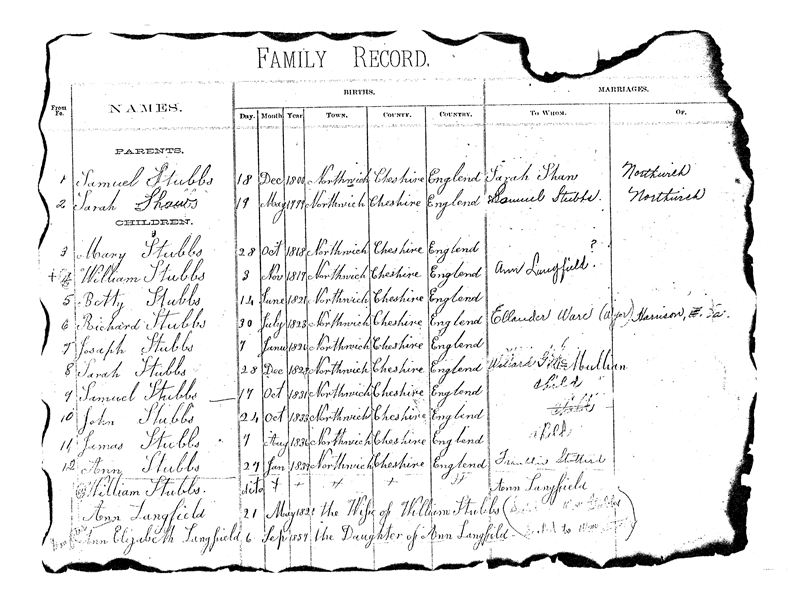 FAMILY RECORD.
From Fo. NAMES. BIRTHS. MARRIAGES.
Day. Month Year. TOWN. COUNTY. COUNTRY. TO WHOM. OF.
PARENTS.
1 Samuel Stubbs 18 Dec 1800 Northwich Cheshire Englend Sarah Shaw Northwich
2 Sarah Shaws 19 May 1799 Northwich Cheshire Englend Samuel Stubbs. Northwich
CHILDREN.
3 Mary Stubbs 28 Oct 1818 Northwich Cheshire Englend
+ William Stubbs 3 Nov 1817 Northwich Cheshire Englend Ann Langfield?
5 Betty Stubbs 14 June 1821 Northwich Cheshire Englend
6 Richard Stubbs 30 July 1823 Northwich Cheshire Englend Ellander Ware Harrison,
7 Josaph Stubbs 7 Janu 1826 Northwich Cheshire Englend
8 Sarah Stubbs 28 Dec 1828 Northwich Cheshire Englend Mullian
9 Samuel Stubbs 17 Oct 1831 Northwich Cheshire Englend child
10 John Stubbs 24 Oct 1833 Northwich Cheshire Englend child
11 Jamas Stubbs 7 Aug 1836 Northwich Cheshire Englend child
12 Ann Stubbs 27 Jan 1837 Northwich Cheshire Englend
William Stubbs. dito + + + Ann Langfield
Ann Langfield 21 May 1821 the Wife of William Stubbs
Ann Elizabeth Langfield 6 Sep 1857 the Daughter of Ann Langfield